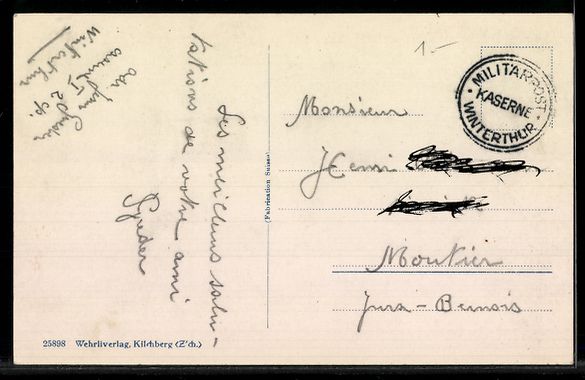 Winterthur
caserne I
2 cp.
Les meilleurs salu-
tations de votre ami
Gyder
(Fabrication Suisse)
1.-
MILITÄRPOST
KASERNE
WINTERTHUR
Monsieur
Henri
Moutier
Jura-Bernois
25898 Wehrliverlag, Kilchberg (Z'ch.)